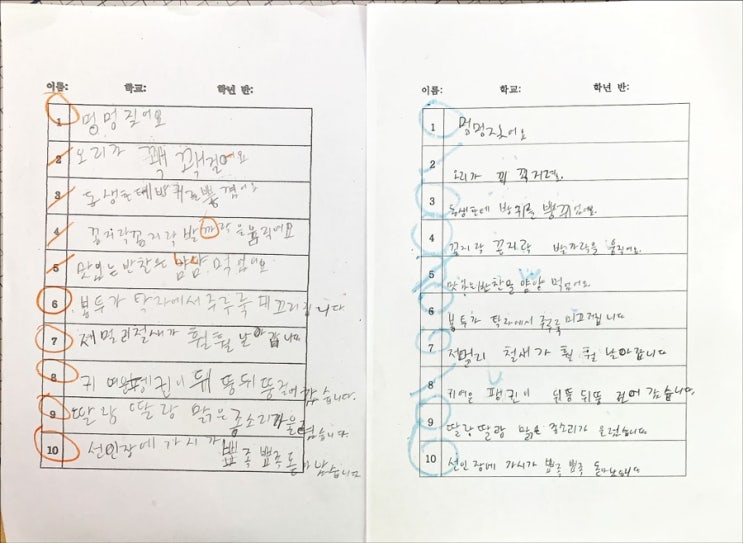 이름: 학교: 학년 반:
1 멍멍 짖어요
2 오리가 꽥 꽥거려요
3 동생은 방귀를 뿡
4 꼼지락꼼지락 발까락을 움직여요
5 맛있는 반찬을 냠냠 먹었어요
6 봉투가 탁자에서 주루룩 미끄러집니다
7 저멀리철새가 훨훨 날아갑니다
8 귀여운펭귄이 뒤뚱뒤뚱걸어갔습니다.
9 딸랑 딸랑 맑은종소리가울렸습니다
10 선인장에 가시가 뾰족 뾰족 돋아났습니다
이름: 학교: 학년 반:
1 멍멍짖어요
2 오리가 꽥 꽥거려요.
3 방귀를 뿡
4 꼼지락 꼼지락 발까락을 움직여요.
5 맛있는반찬을 냠냠 먹었어요
6 봉투가 탁자에서 주루룩 미끄러집니다
7 저멀리 철새가 훨 훨 날아갑니다
8 귀여운 팽귄이 뒤뚱 뒤뚱 걸어 갔습니다.
9 딸랑딸랑 맑은 종소리가 울렸습니다.
10 선인장에 가시가 뾰족 뾰족 돋아났습니다